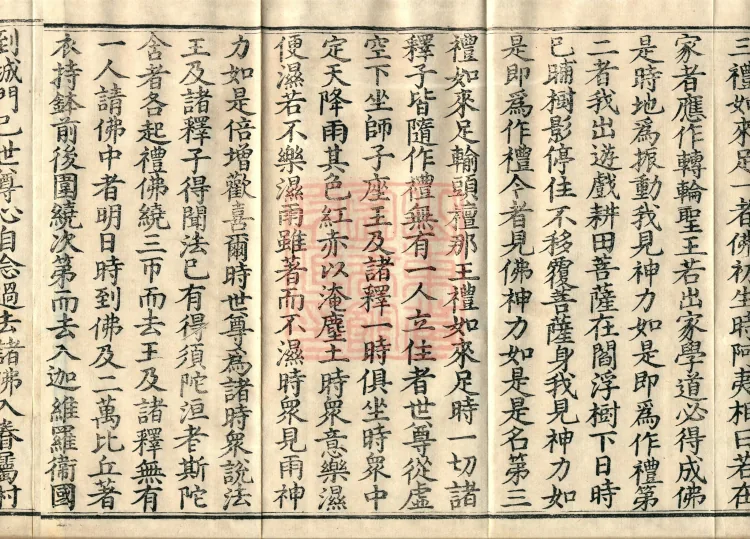 三禮如來足一者佛初生時阿夷相曰若在
家者應作轉輪聖王若出家學道必得成佛
是時地爲振動我見神力如是即爲作禮第
二者我出遊戲耕田菩薩在閻浮樹下日時
已晡樹影停住不移覆菩薩身我見神力如
是即爲作禮今者見佛神力如是是名第三
禮如來足輸頭檀那王禮如來足時一切諸
釋子皆隨作禮無有一人立住者世尊從虛
空下坐師子座王及諸釋一時俱坐時眾中
定天降雨其色紅亦以淹塵土時眾意樂濕
便濕若不樂濕雨雖著而不濕時眾見雨神
力如是倍增歡喜爾時世尊爲諸時眾說法
王及諸釋子得聞法已有得須陀洹者斯陀
含者各起禮佛繞三帀而去王及諸釋無有
一人請佛中者明日時到佛及二萬比丘著
衣持鉢前後圍繞次第而去入迦維羅衛國
到城門已世尊心自念過去諸佛入眷屬村